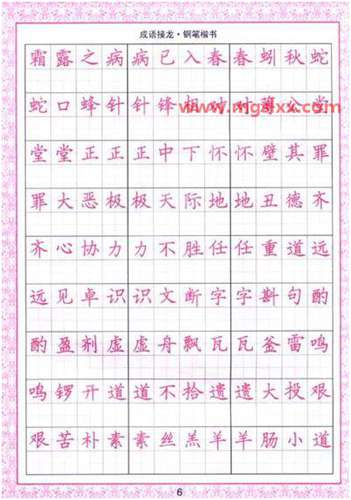 成语接龙·钢笔楷书
霜露之病病已入春春蚓秋蛇
蛇口蜂针针锋相对对簿公堂
www.mgsxx.com
堂堂正正正中下怀怀璧其罪
罪大恶极极天际地地丑德齐
齐心协力力不胜任任重道远
远见卓识识文断字字斟句酌
酌盈剂虚虚舟飘瓦瓦釜雷鸣
鸣锣开道道不拾遗遗大投艰
艰苦朴素素丝羔羊羊肠小道
6